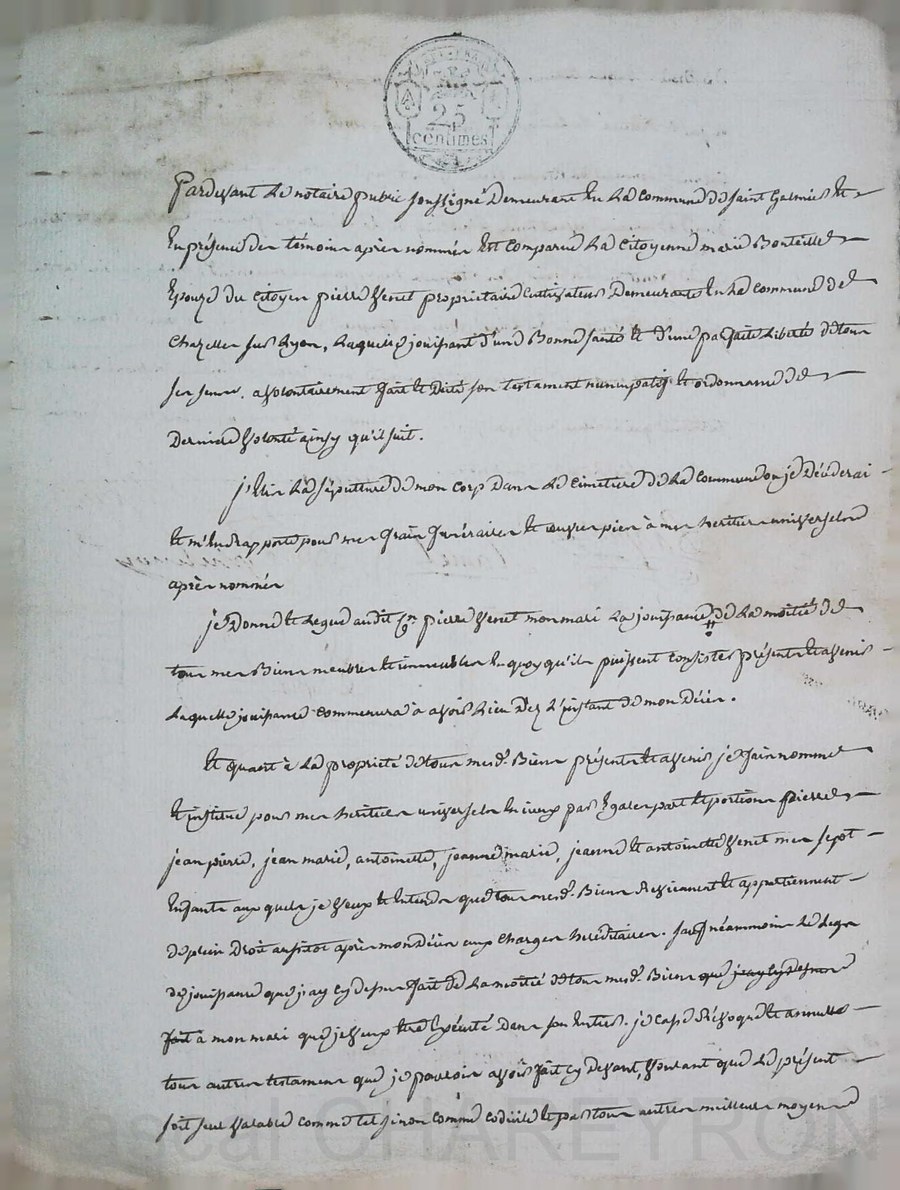 25
centimes
Pardevant Le notaire public soussigné Demeurant En La Commune de Saint Galmier Et
En présence des témoins après nommés Est Comparue La Citoyenne marie Bonteille
Epouze du Citoyen pierre Venet propriétaire Cultivateur Demeurante En La Commune de
Chazelles sur Lyon, Laquelle jouissant d'une Bonne santé Et d'une parfaite Liberté de tous
ses sens. a volontairement fait Et Dicté son testament nuncupatif Et ordonnance de
Derniere volonté ainsy qu'il suit.
j'Elis La sépulture de mon corp Dans Le Cimetiere de La Commune ou je Décéderai
Et m'En rapporte pour mes frais funéraires Et œuvres pies à mes heritiers universels
après nommés
je Donne Et Legue audit Cyn pierre Venet mon mari La jouissance de La moitié de
tous mes Biens meubles Et immeubles En quoy qu'ils puissent Consister présents Et avenir
Laquelle jouissance commencera à avoir Lieu Dez L'instant de mon Décès.
Et quant à La propriété de tous mesd. Biens présents Et avenir je fais nomme
Et institue pour mes heritiers universels Entreux par Egales part Et portions pierre
jean pierre, jean marie, antoinette, jeanne marie, jeanne Et antoinette Venet mes sept
Enfants aux quels je Veux Et Entends que tous mesd. Biens Reviennent Et appartiennent
de plein Droit aussitot après mon Décès aux Charges héréditaires. sauf néammoins Le Legs
de jouissance que j'ay Cy dessus fait de La moitié de tous mesd. Biens que j'ay Cy dessus
fait à mon mari que je Veux Etre Exécuté Dans son Entier. je Casse Révoque Et annulle
tous autres testament que je pourrois avoir fait Cy Devant, Voulant que Le présent
soit seul Valable comme tel sinon comme codicile Et par tous autres meilleurs moyens
Pascal CHAREYRON